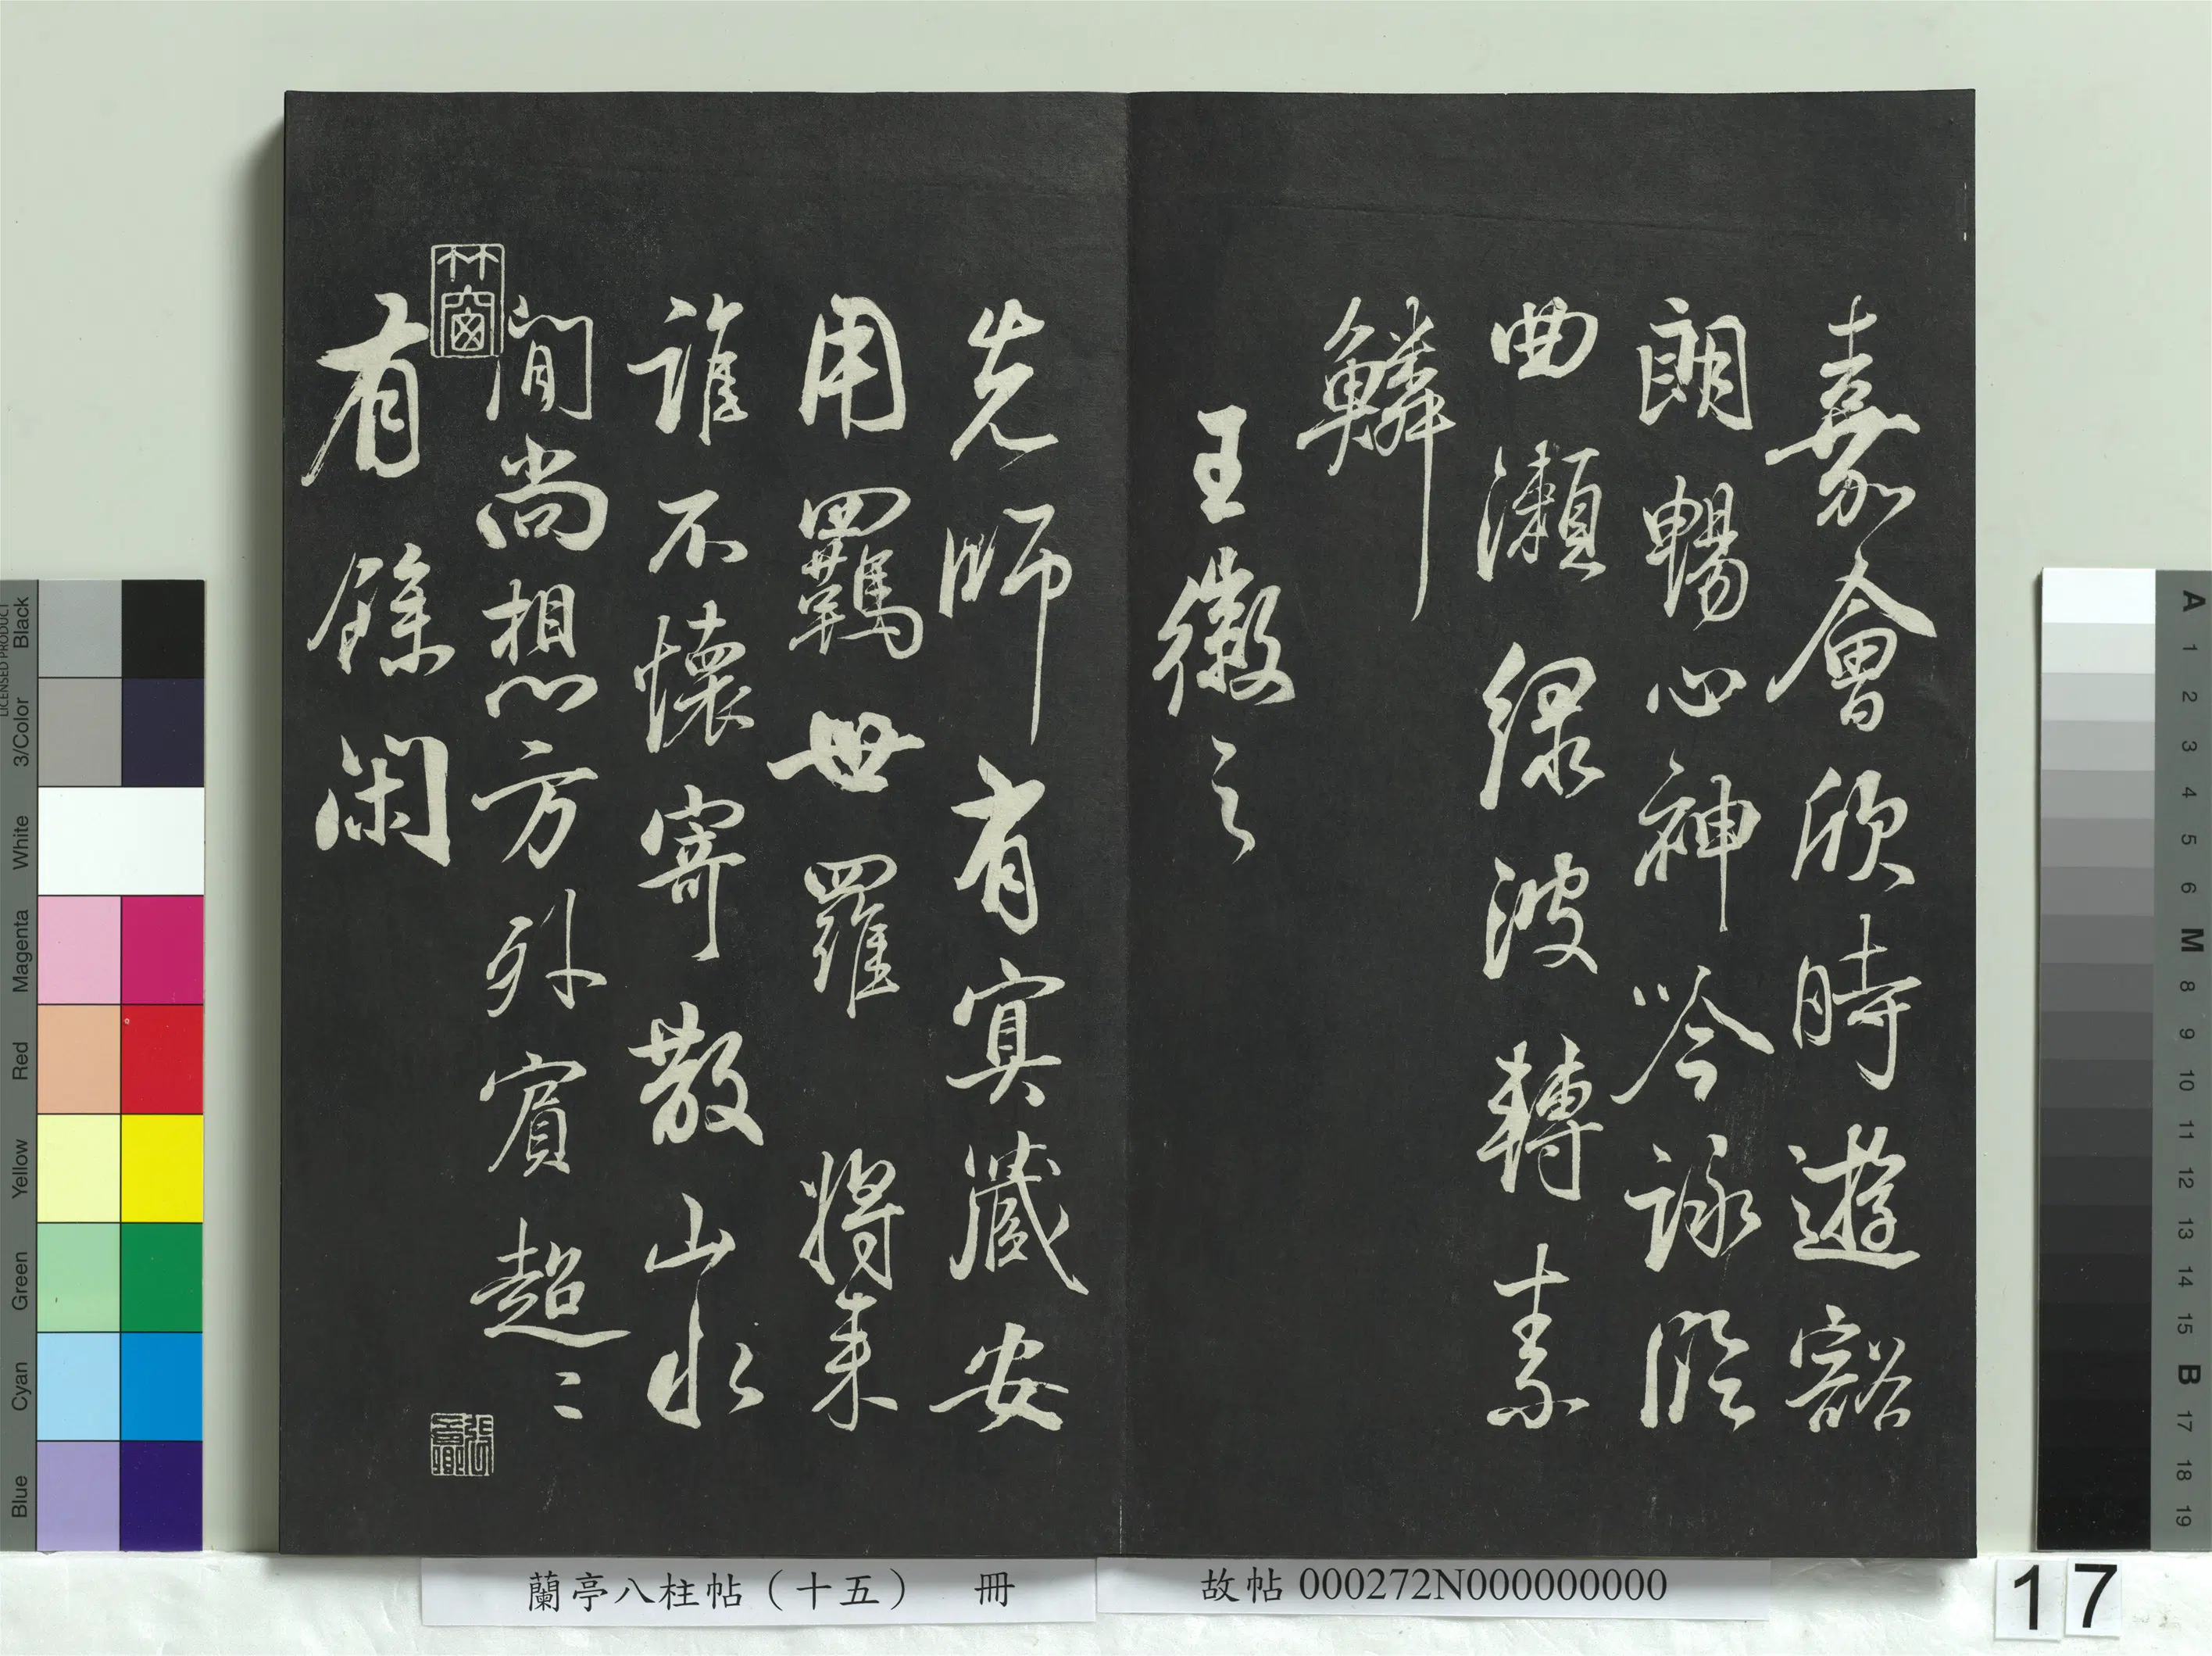 嘉會欣時遊豁
朗暢心神吟詠曲
曲瀨綠波轉素
鱗
王徽之
先師有冥藏安
用羈世羅將來
誰不懷寄散山水
間尚想方外賓超〻
有餘閑
竹窗
蘭亭八柱帖（十五） 冊
故帖 000272N000000000
17
Black
3/Color
White
Magenta
Red
Yellow
Green
Cyan
Blue
LICENSED PRODUCT
A
1
2
3
4
5
6
M
8
9
10
11
12
13
14
15
B
17
18
19